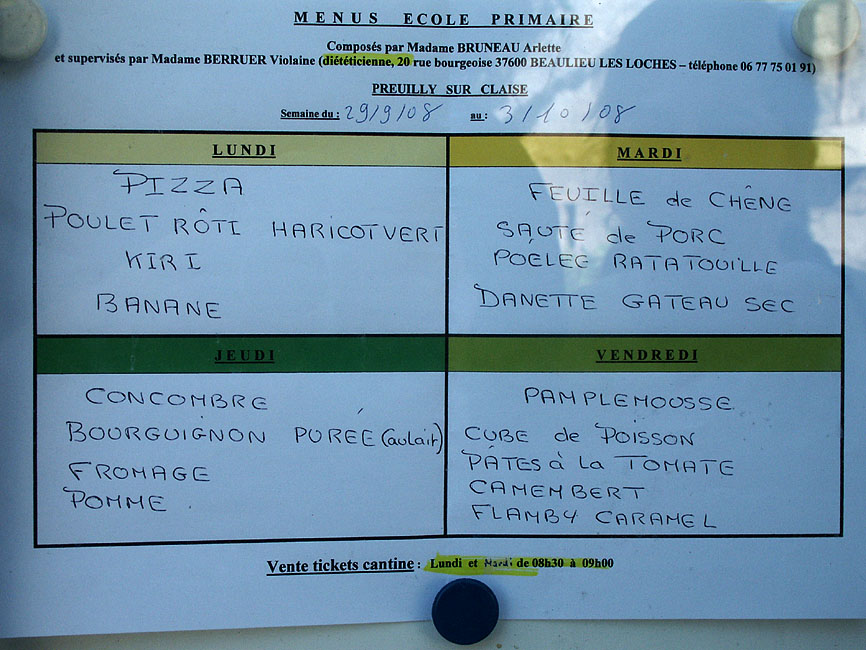 MENUS ECOLE PRIMAIRE
Composés par Madame BRUNEAU Arlette
et supervisés par Madame BERRUER Violaine (diététicienne, 20 rue bourgeoise 37600 BEAULIEU LES LOCHES – téléphone 06 77 75 01 91)
PREUILLY SUR CLAISE
Semaine du : 29/9/08 au : 3/10/08
LUNDI
PIZZA
POULET RÔTI HARICOT VERT
KIRI
BANANE
MARDI
FEUILLE de CHÊNE
SAUTÉ de PORC
POÊLEE RATATOUILLE
DANETTE GATEAU SEC
JEUDI
CONCOMBRE
BOURGUIGNON PURÉE (au lait)
FROMAGE
POMME
VENDREDI
PAMPLEMOUSSE
CUBE de POISSON
PÂTES à la TOMATE
CAMEMBERT
FLAMBY CARAMEL
Vente tickets cantine : Lundi et Mardi de 08h30 à 09h00